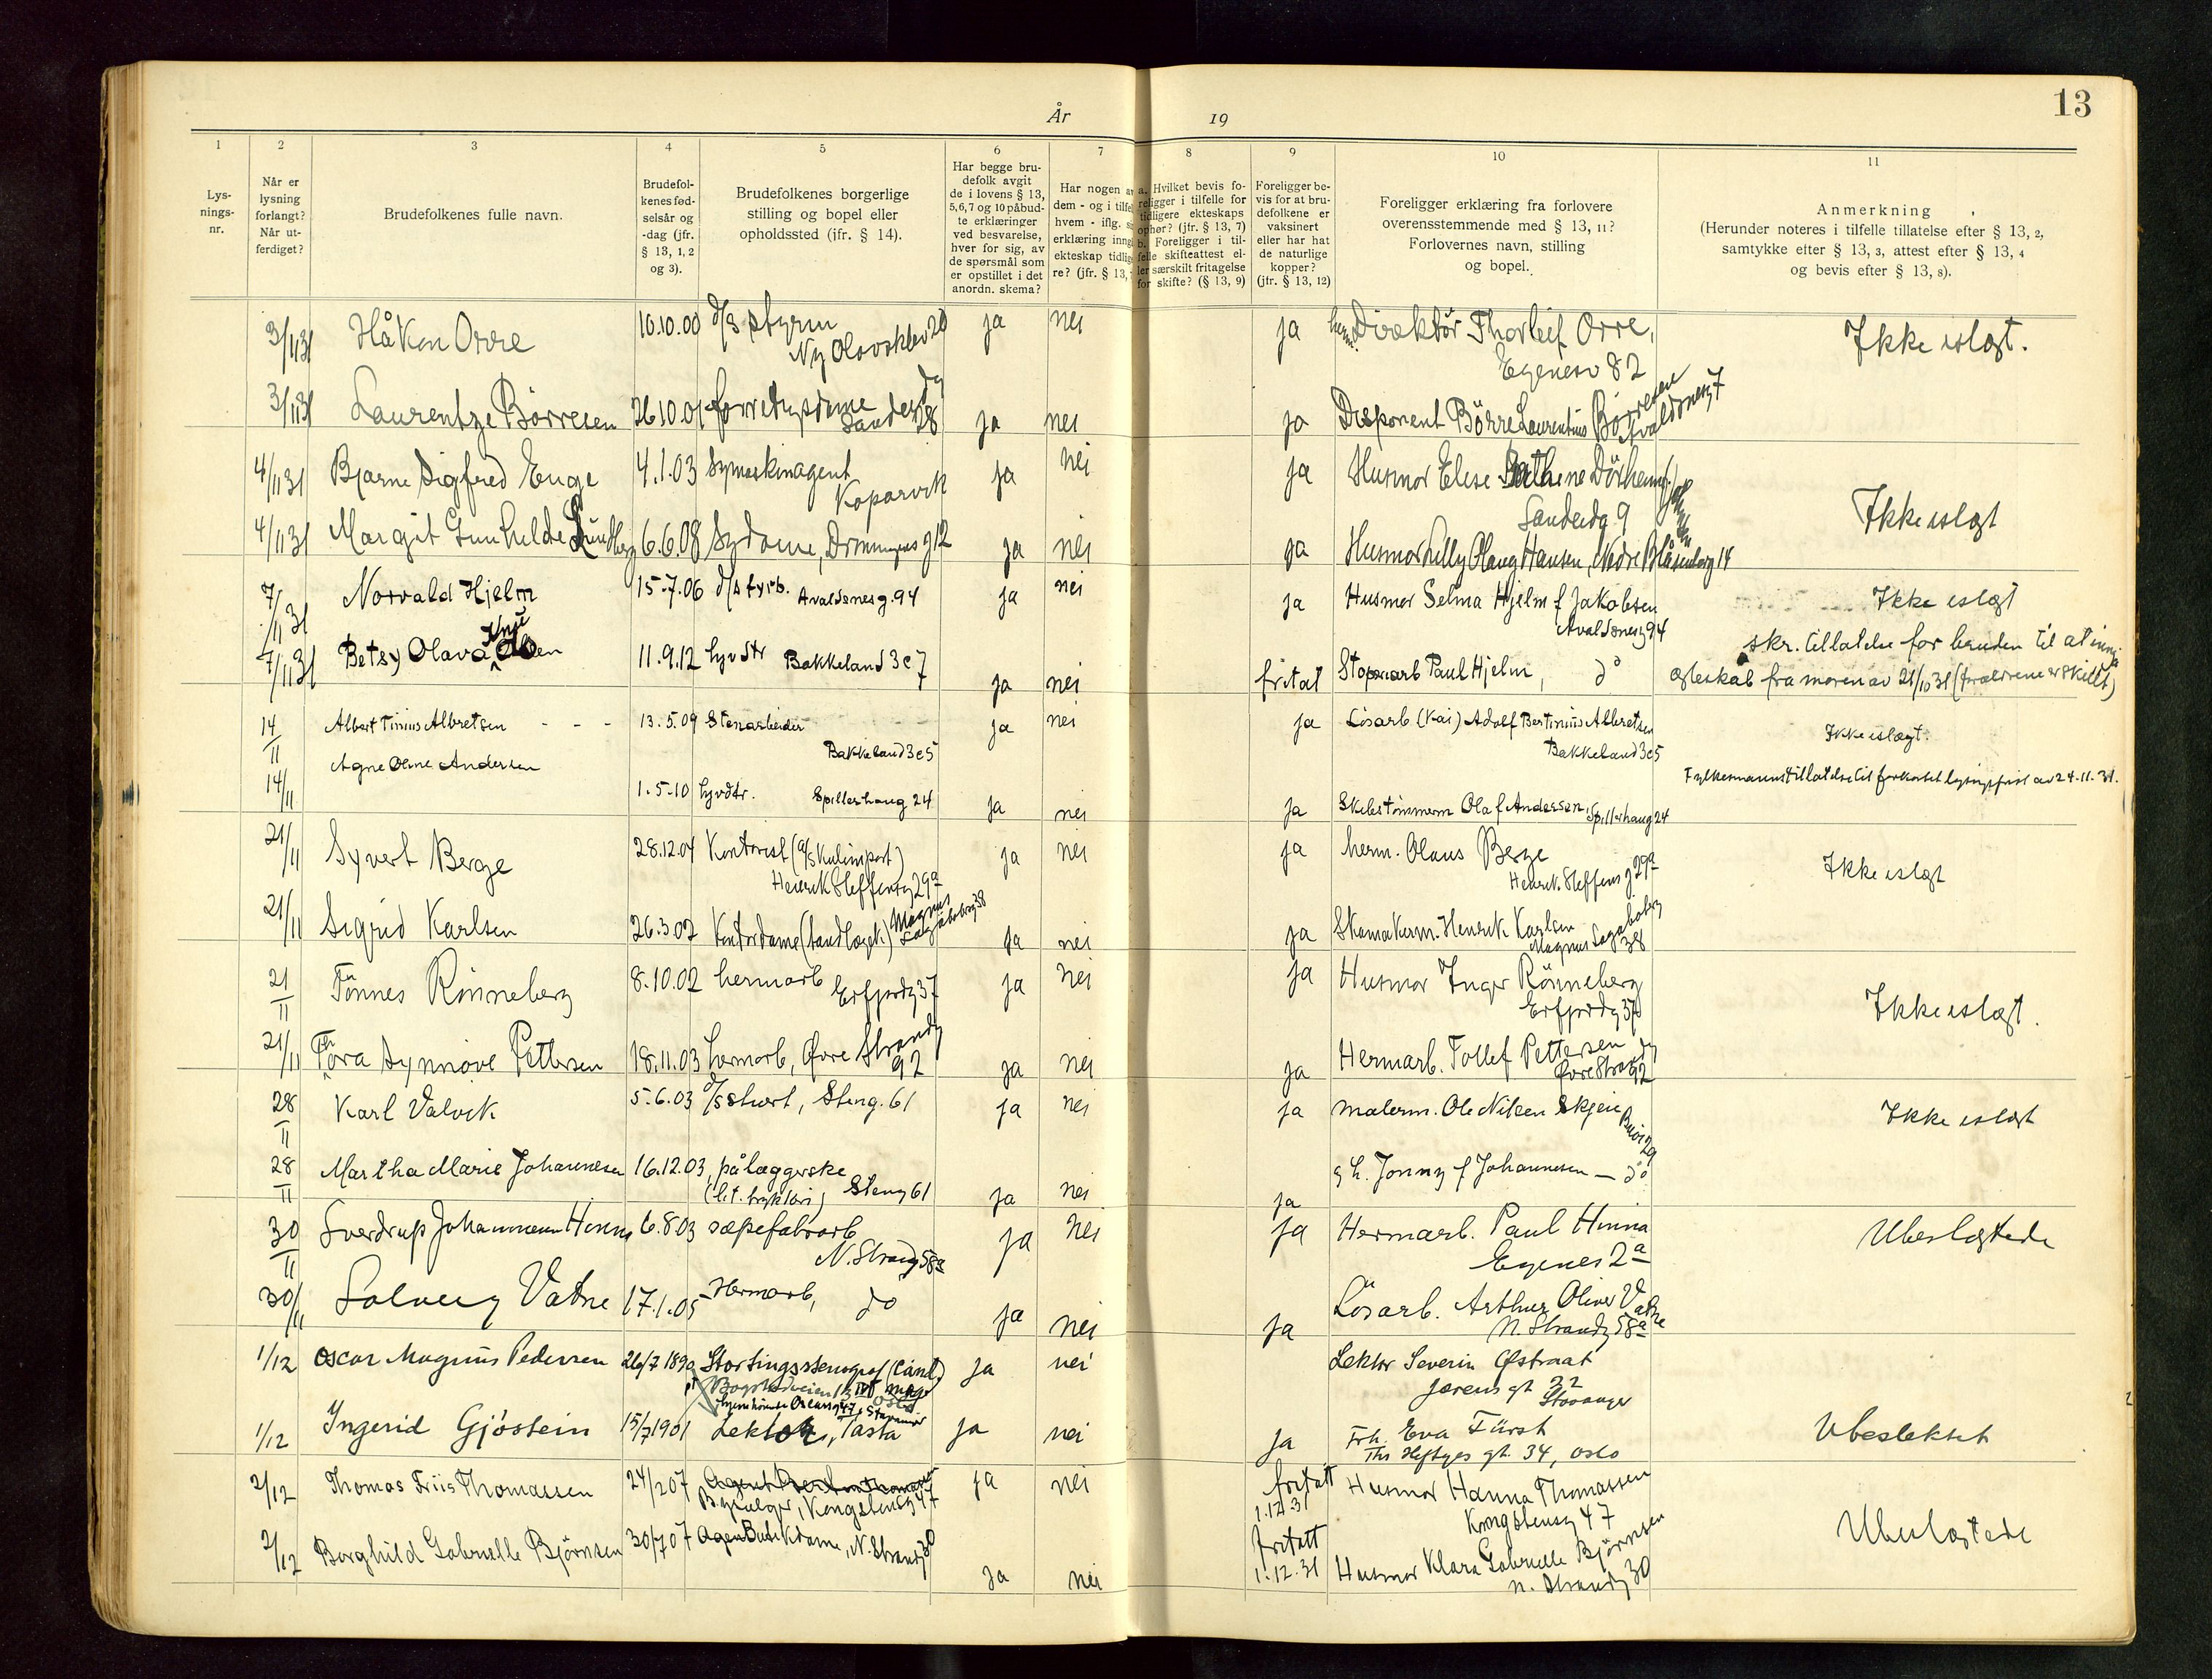 13
År 19
1 2 3 4 5 6 7 8 9 10 11
Lys-
nings-
nr.
Når er
lysning
forlangt?
Når ut-
ferdiget?
Brudefolkenes fulle navn.
Brudefol-
kenes fød-
selsår og
-dag (jfr.
§ 13, 1, 2
og 3).
Brudefolkenes borgerlige
stilling og bopel eller
opholdssted (jfr. § 14).
Har begge bru-
defolk avgit
de i lovens § 13,
5,6,7 og 10 påbud-
te erklæringer
ved besvarelse,
hver for sig, av
de spørsmål som
er opstillet i det
anordn. skema?
Har nogen av
dem - og i tilfel
hvem - iflg. s
erklæring inng
ekteskap tidlig
re? (jfr. § 13,
a. Hvilket bevis fo-
religger i tilfelle for
tidligere ekteskaps
ophør? (jfr. § 13, 7)
b. Foreligger i til-
felle skifteattest el-
ler særskilt fritagelse
for skifte? (§ 13, 9)
Foreligger be-
vis for at bru-
defolkene er
vaksinert
eller har hat
de naturlige
kopper?
(jfr. § 13, 12)
Foreligger erklæring fra forlovere
overensstemmende med § 13, 11?
Forlovernes navn, stilling
og bopel.
Anmerkning
(Herunder noteres i tilfelle tillatelse efter § 13, 2,
samtykke efter § 13, 3, attest efter § 13, 4
og bevis efter § 13, 8).
3/1131 Håkon Orre 10.10.00 d/s styrm ja nei ja Direktör Thorleif Orre, Ikke islægt.
Ny Olavsklev 20 Egenesv 82
3/1131 Laurentze Börresen 26.10.01 ja nei ja Disponent Börre Laurentius Börresen
28 Avaldsnesg 7
4/1131 Bjarne Sigfred Enge 4.1.03 Symaskinagent ja nei ja Husmor Elise
Kopervik Sandeidg 9 Ikke islægt
4/1131 Margit Gunhilde Lundberg 6.6.08 Sydame, Dronningens g 12 ja nei ja Husmor Lilly Olaug Hansen, Nedre Blåsenborg 14
7/1131 Norvald Hjelm 15.7.06 d/s fyrb. Avaldsnesg. 94 ja nei ja Husmor Selma Hjelm f Jakobsen Ikke islægt
Avaldsnesg 94
7/1131 Betsy Olava 11.9.12 hvdtr Bakkeland 3 e 7 ja nei fritat Paul Hjelm, do
skr. tillatelse for bruden til at inngå
ægteskab fra moren av 21/10 31 (forældrene er skillt)
14/11 Albert Tinius Albretsen - - - 13.5.09 Stenarbeider ja nei ja Lösarb. (Kai) Adolf Bertinius Albretsen Ikke islægt.
Bakkeland 3 e 5 Bakkeland 3 e 5
14/11 Agne Oline Andersen 1.5.10 hvdtr. Spillerhaug 24 ja nei ja Skibstömmerm Olaf Andersen, Spillerhaug 24
Fylkesmannstillatelse til forkortet lysningsfrist av 24.11.31.
21/11 Syvert Berge 28.12.04 Kontorist (a/s Kulimport) ja nei ja herm. Olaus Berge Ikke islægt
Henrik Steffensg 29a Henrik Steffens g 29a
21/11 Sigrid Karlsen 26.3.07 Kontordame (tandlægek.) Magnus Lagabøtersg 38 ja nei ja Skomakerm. Henrik Karlsen
Magnus Lagabøterg 38
21/11 Tönnes Rönneberg 8.10.02 hermarb ja nei ja Husmor Inger Rönneberg Ikke islægt.
Erfjordg 37 Erfjordg 37
21/11 Thora Synnöve Pettersen 18.11.03 hermarb, Øvre Strandg 92 ja nei ja Hermarb. Tollef Pettersen
Øvre Strandg 92
28/11 Karl Valvik 5.6.03 d/s stuert, Steng. 61 ja nei ja Malerm. Ole Nilsen Skjeie Ikke islægt
28/11 Martha Marie Johannesen 16.12.03 pålæggerske ja nei ja g h. Jonny f Johannesen — do
(lit. trykkeri) Steng 61
30/11 Sverdrup Johannesen Hinna 6.8.03 sæpefabrarb ja nei ja Hermarb. Paul Hinna Ubeslægtede
N. Strandg 58a Egenes 2a
30/11 Solveig Vatne 17.1.05 Hermarb, do ja nei ja Lösarb. Arthur Oliver Vatne
N. Strandg 58a
1/12 Oscar Magnus Pedersen 26/7 1890 Stortingsstenograf (Cand. mag) ja nei Lektor Severin Østraat
Oslo Jærens gt 32 Stavanger
1/12 Ingerid Gjöstein 15/7 1901 Lektor, Tasta ja nei ja Frk. Eva Fürst Ubeslektet
Ths Heftyes gt. 34, Oslo
2/12 Thomas Friis Thomassen 24/2 07 ja nei fritatt 1.12.31 Husmor Hanna Thomassen
Kongsteinsg 47 Kongsteinsg 47 Ubeslægtede
2/12 Borghild Gabrielle Björnsen 30/7 07 Butikdame, N. Strandg 30 ja nei fritatt 1.12.31 Husmor Klara Gabrielle Björnsen
N. Strandg 30